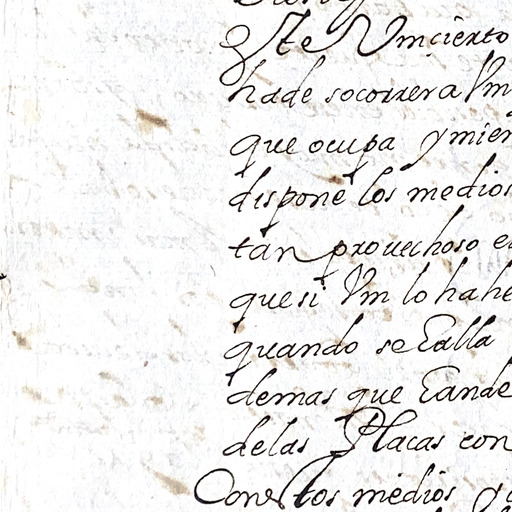 este Vm cierto
ha de socorrer a Vm
que ocupa y mien
dispone los medios
tan provechoso e
que si Vm lo ha he
quando se Ealla
demas que Eande
de las Placas con
Con estos medios y